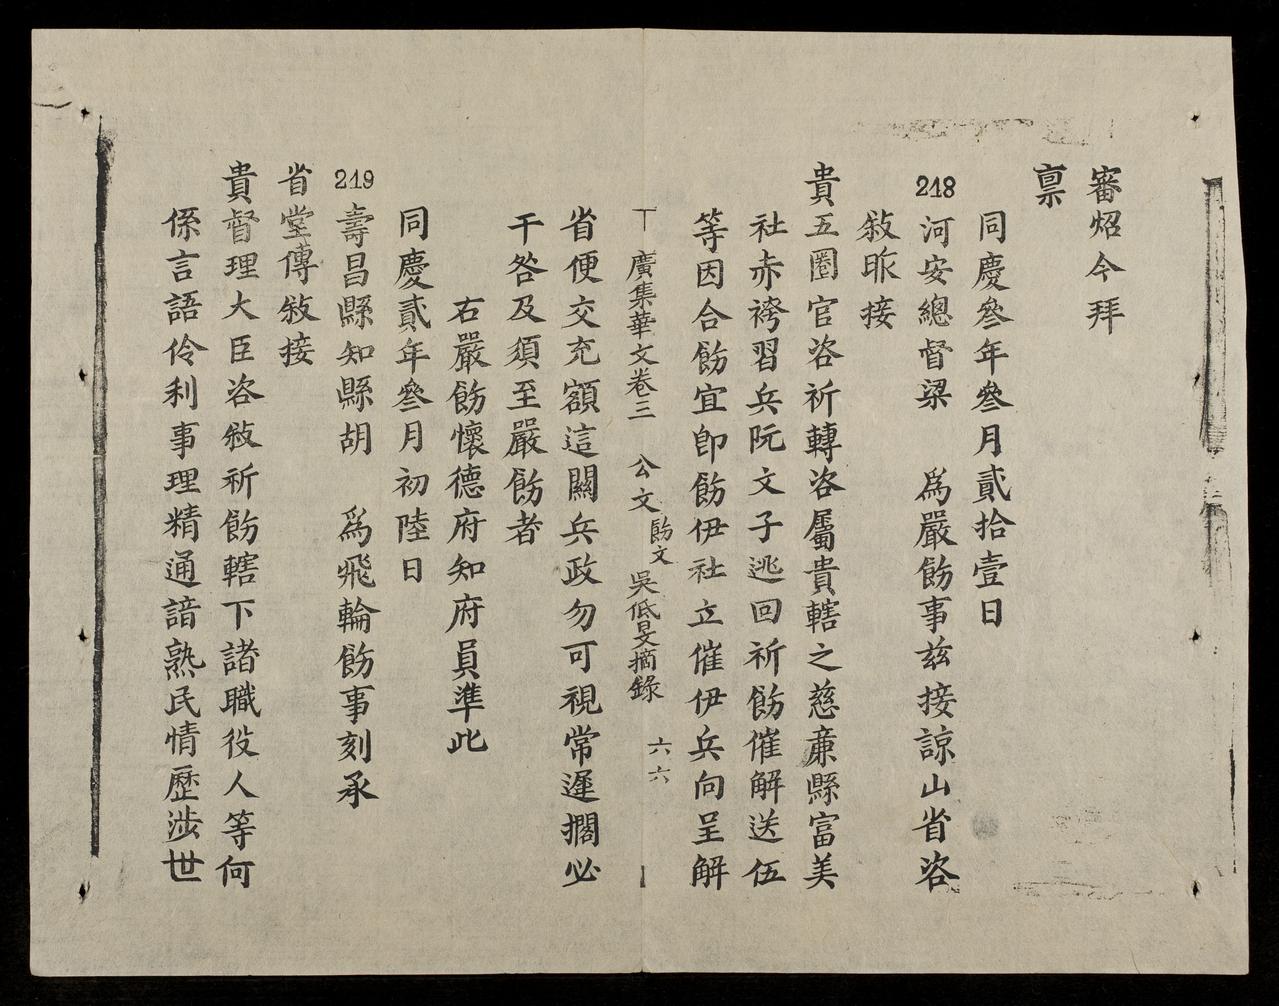 審炤今拜
稟
同慶叄年叄月貳拾壹日
218
河安總督梁 爲嚴飭事茲接諒山省咨
敍昨接
貴五圈官咨祈轉咨屬貴轄之慈廉縣富美
社赤袴習兵阮文子逃回祈飭催解送伍
等因合飭宜卽飭伊社立催伊兵向呈解
廣集華文卷三 公文 飭文 吳低旻摘錄 六六
省便交充額這關兵政勿可視常遲擱必
干咎及須至嚴飭者
右嚴飭懷德府知府員準此
同慶貳年叄月初陸日
219
壽昌縣知縣胡 爲飛輪飭事刻承
省堂傳敍接
貴督理大臣咨敍祈飭轄下諸職役人等何
係言語伶利事理精通諳熟民情歷涉世